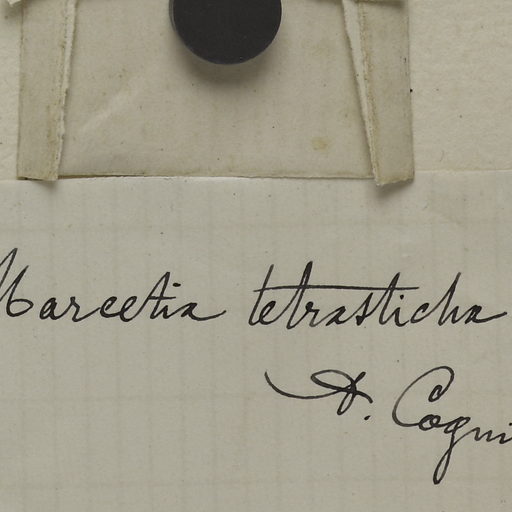 Marcetia tetrasticha
A. Cogni